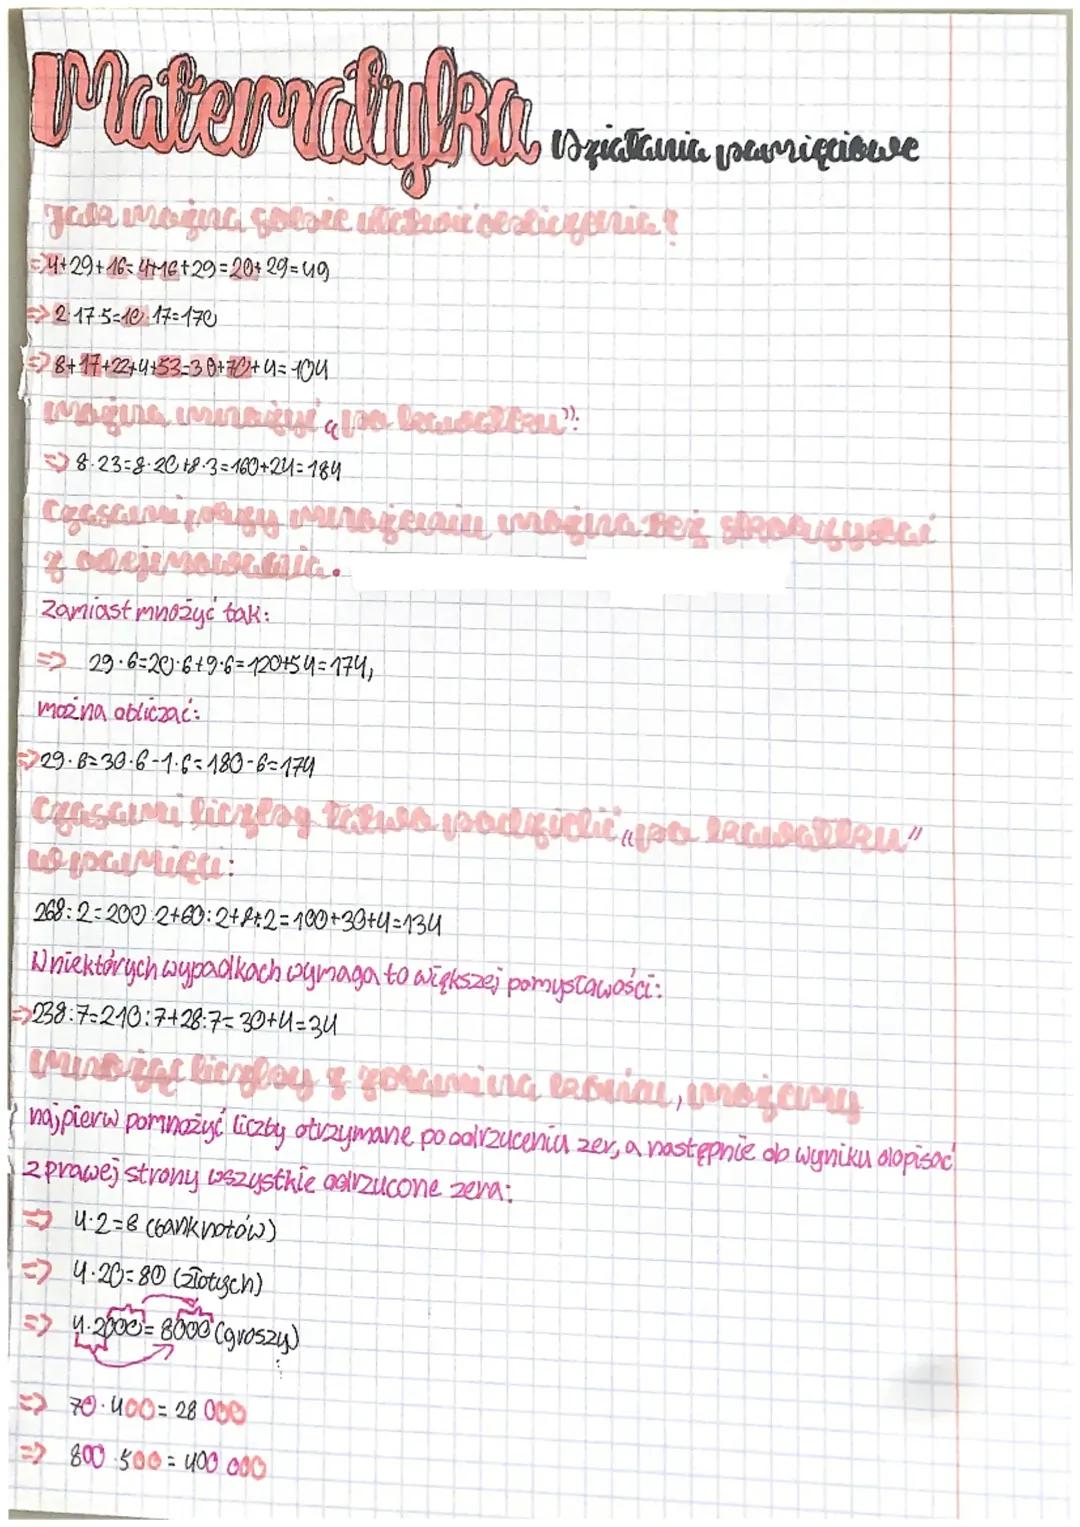 Matematyka Działania pamięciowe
Jak można sobie ułatwić obliczenia?
=> 4+29+16=4+16+29=20+29=49
=> 2·17·5=10·17=170
=> 8+17+22+4+53=30+70+4=104
można mnożyć „po kawałku”:
=> 8·23=8·20+8·3=160+24=184
Czasami przy mnożeniu można też skorzystać
z odejmowania.
Zamiast mnożyć tak:
=> 29·6=20·6+9·6=120+54=174,
można obliczać:
=> 29·6=30·6-1·6=180-6=174
Czasami liczby łatwo podzielić „po kawałku”
w pamięci:
268:2=200:2+60:2+8:2=100+30+4=134
W niektórych wypadkach wymaga to większej pomysławości:
=> 238:7=210:7+28:7=30+4=34
mnożąc liczby z zerami na końcu, możemy
najpierw pomnożyć liczby otrzymane po odrzuceniu zer, a następnie do wyniku dopisać
z prawej strony wszystkie odrzucone zera:
=> 4·2=8 (banknotów)
=> 4·20=80 (złotych)
=> 4·2000=8000 (groszy)
=> 70·400=28 000
=> 800·500=400 000